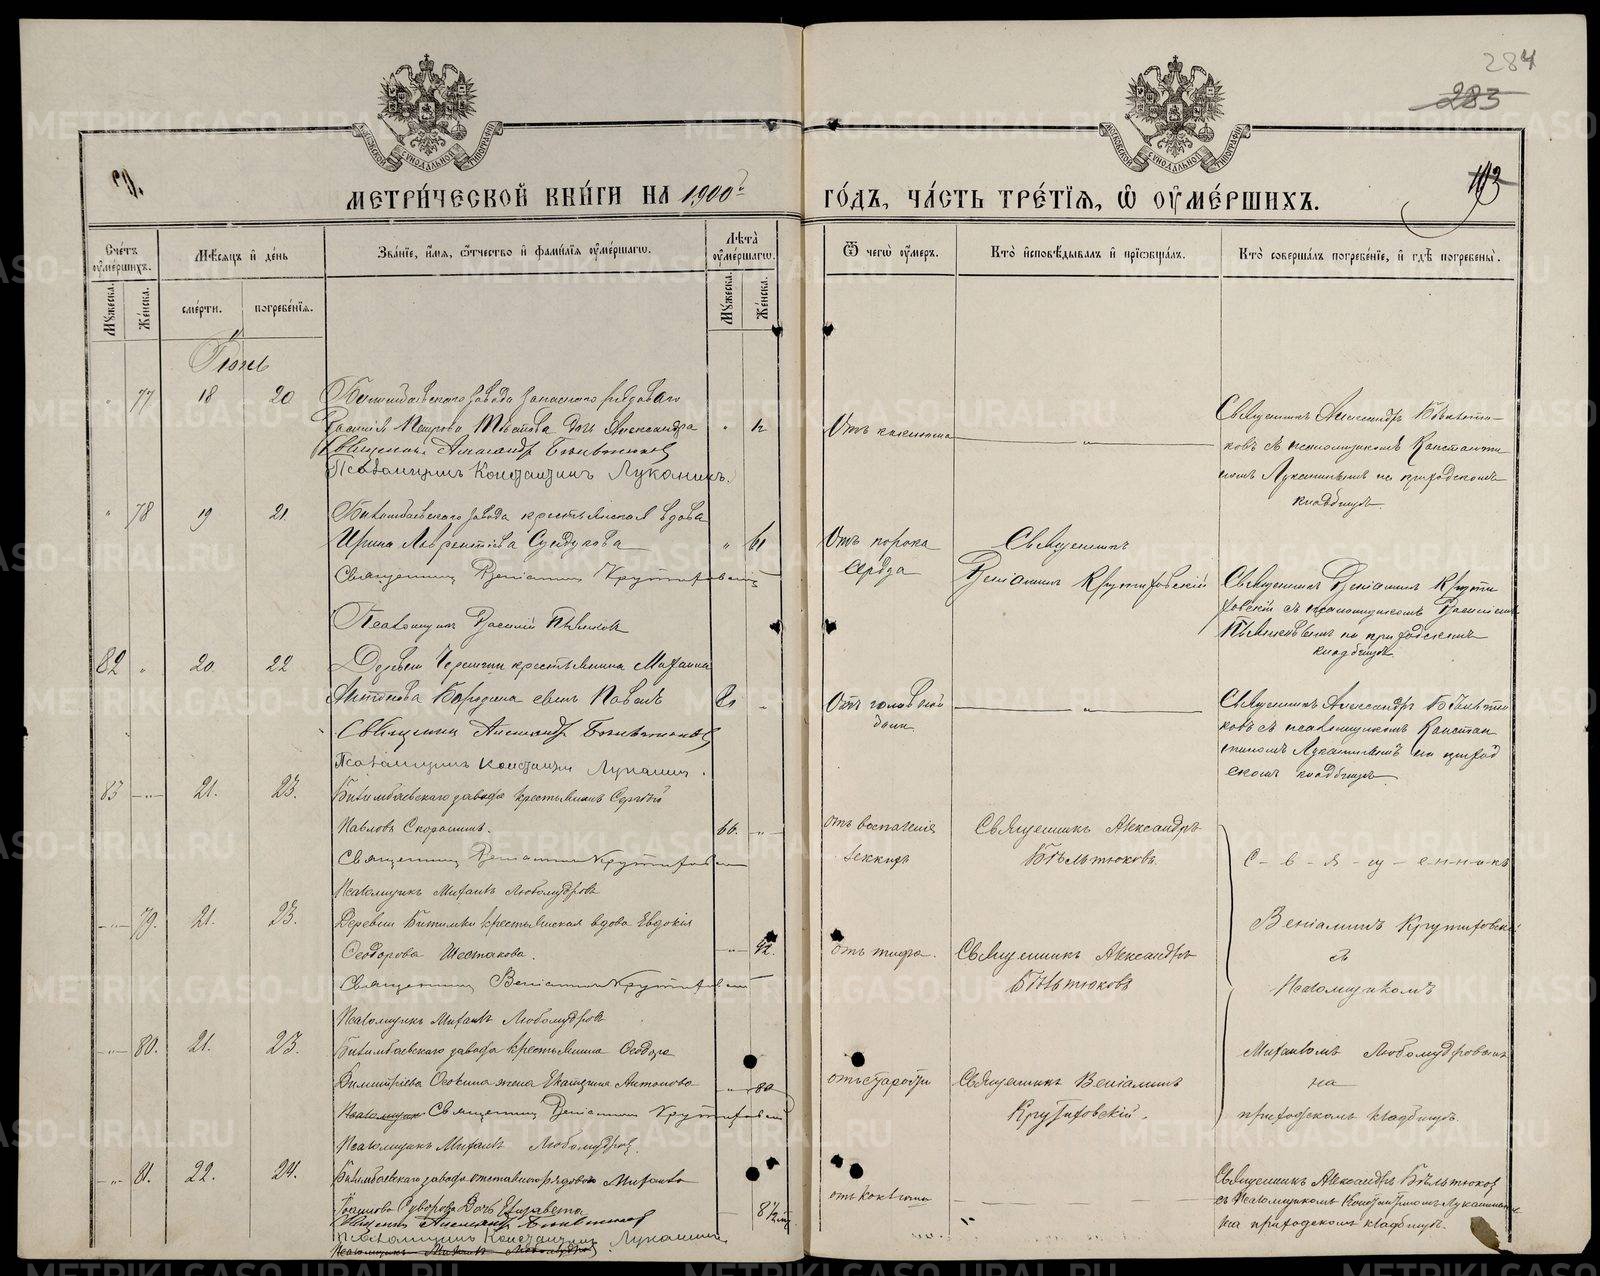 284
283
193
МЕТРИЧЕСКОЙ КНИГИ НА 1900й ГОДЪ, ЧАСТЬ ТРЕТІЯ, Ѿ ОУМЕРШИХЪ.
Счетъ оумершихъ.
Мѣсяцъ и день
Званіе, имя, ѿчество и фамилія оумершагѡ.
Лѣта оумершагѡ.
Ѿ чегѡ оумеръ.
Кто исповѣдывалъ и пріѡбщалъ.
Кто совершалъ погребеніе, и гдѣ погребены.
Мужеска.
Женска.
смерти.
погребенія.
Мужеска.
Женска.
Іюнь
" 77 18 20
Билимбаевскаго завода запаснаго рядоваго
Василія Петрова дочь Александра
Священникъ Александръ Бѣльтюковъ
Псаломщикъ Константинъ Лукашинъ.
Отъ коклюша
Священникъ Александръ Бѣльтю-
ковъ съ псаломщикомъ Константи-
номъ Лукашинымъ на приходскомъ
кладбищѣ
" 78 19 21
Билимбаевскаго завода крестьянская вдова
Ирина Лаврентіева Сундукова " 61
Священникъ Веніаминъ Крутиховскій
Псаломщикъ Василій Пьянковъ
Отъ порока
сердца
Священникъ
Веніаминъ Крутиховскій
Священникъ Веніаминъ Крути-
ховскій съ псаломщикомъ Василіемъ
Пьянковымъ на приходскомъ
кладбищѣ
82 " 20 22
Деревни Черемши крестьянина Михаила
Антонова Бородина сынъ Павелъ
Священникъ Александръ Бѣльтюковъ
Псаломщикъ Константинъ Лукашинъ.
Отъ головной
боли
Священникъ Александръ Бѣльтю-
ковъ съ псаломщикомъ Констан-
тиномъ Лукашинымъ на приход
скомъ кладбищѣ
83 21. 23.
Билимбаевскаго завода крестьянинъ Сергѣй
Павловъ Скорынинъ. 66. "
Священникъ Веніаминъ Крутиховскій
Псаломщикъ Михаилъ Любомудровъ
отъ воспаленія
легкихъ
Священникъ Александръ
Бѣльтюковъ.
С-в-я-щ-е-н-н-и-къ
Веніаминъ Крутиховскій
съ
Псаломщикомъ
Михаиломъ Любомудровымъ
на
приходскомъ кладбищѣ.
79. 21. 23.
Деревни Битимки крестьянская вдова Евдокія
Ѳеодорова Шестакова. " 42.
Священникъ Веніаминъ Крутиховскій
Псаломщикъ Михаилъ Любомудровъ
отъ тифа.
Священникъ Александръ
Бѣльтюковъ
80. 21. 23.
Билимбаевскаго завода крестьянина Ѳеодора
Димитріева жена Екатерина Антонова " 80
Псаломщикъ Священникъ Веніаминъ Крутиховскій
Псаломщикъ Михаилъ Любомудровъ.
отъ старости
Священникъ Веніаминъ
Крутиховскій.
81. 22. 24.
Билимбаевскаго завода отставного рядового Михаила
Суворова дочь Елизавета
Священникъ Александръ Бѣльтюковъ
Псаломщикъ Константинъ Лукашинъ
Псаломщикъ Михаилъ Любомудровъ
отъ коклюша
Священникъ Александръ Бѣльтюковъ
съ Псаломщикомъ Константиномъ Лукашинымъ
на приходскомъ кладбищѣ.
METRIKI.GASO-URAL.RU